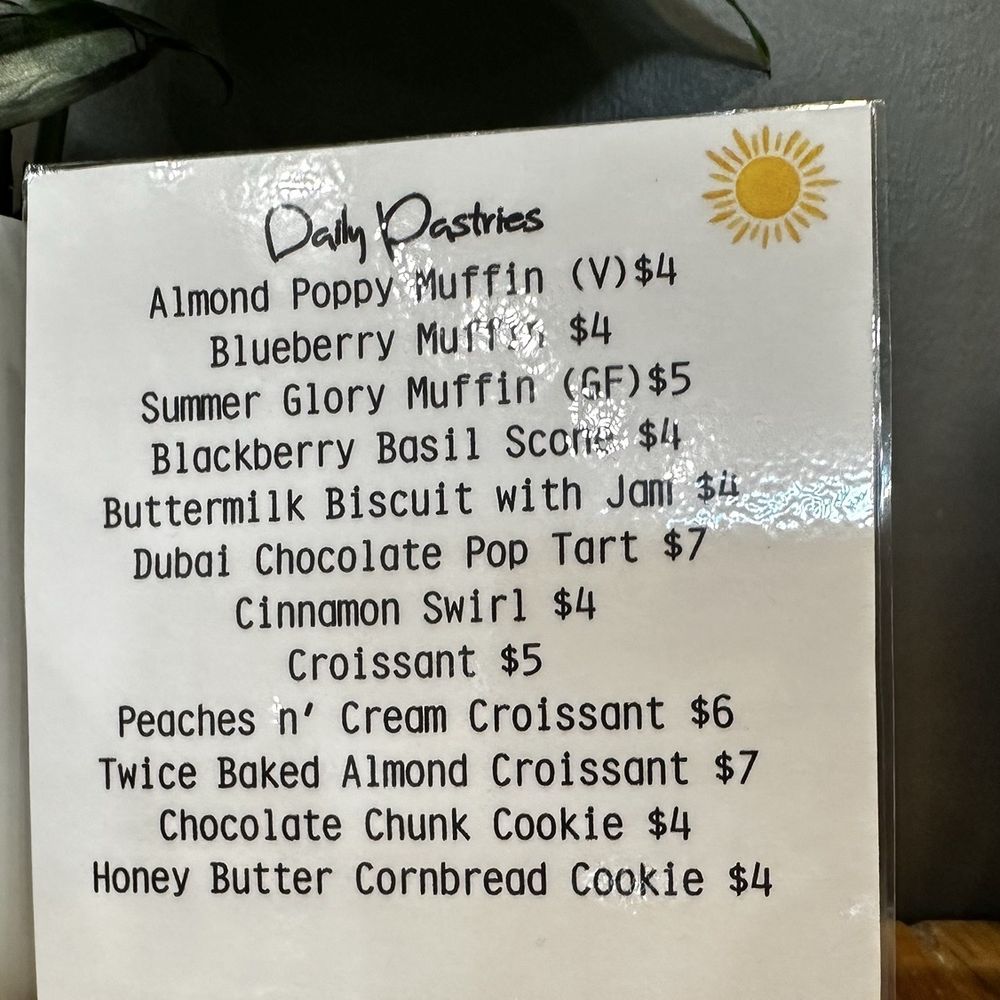 Daily Pastries
Almond Poppy Muffin (V)$4
Blueberry Muffin $4
Summer Glory Muffin (GF)$5
Blackberry Basil Scone $4
Buttermilk Biscuit with Jam $4
Dubai Chocolate Pop Tart $7
Cinnamon Swirl $4
Croissant $5
Peaches n’ Cream Croissant $6
Twice Baked Almond Croissant $7
Chocolate Chunk Cookie $4
Honey Butter Cornbread Cookie $4